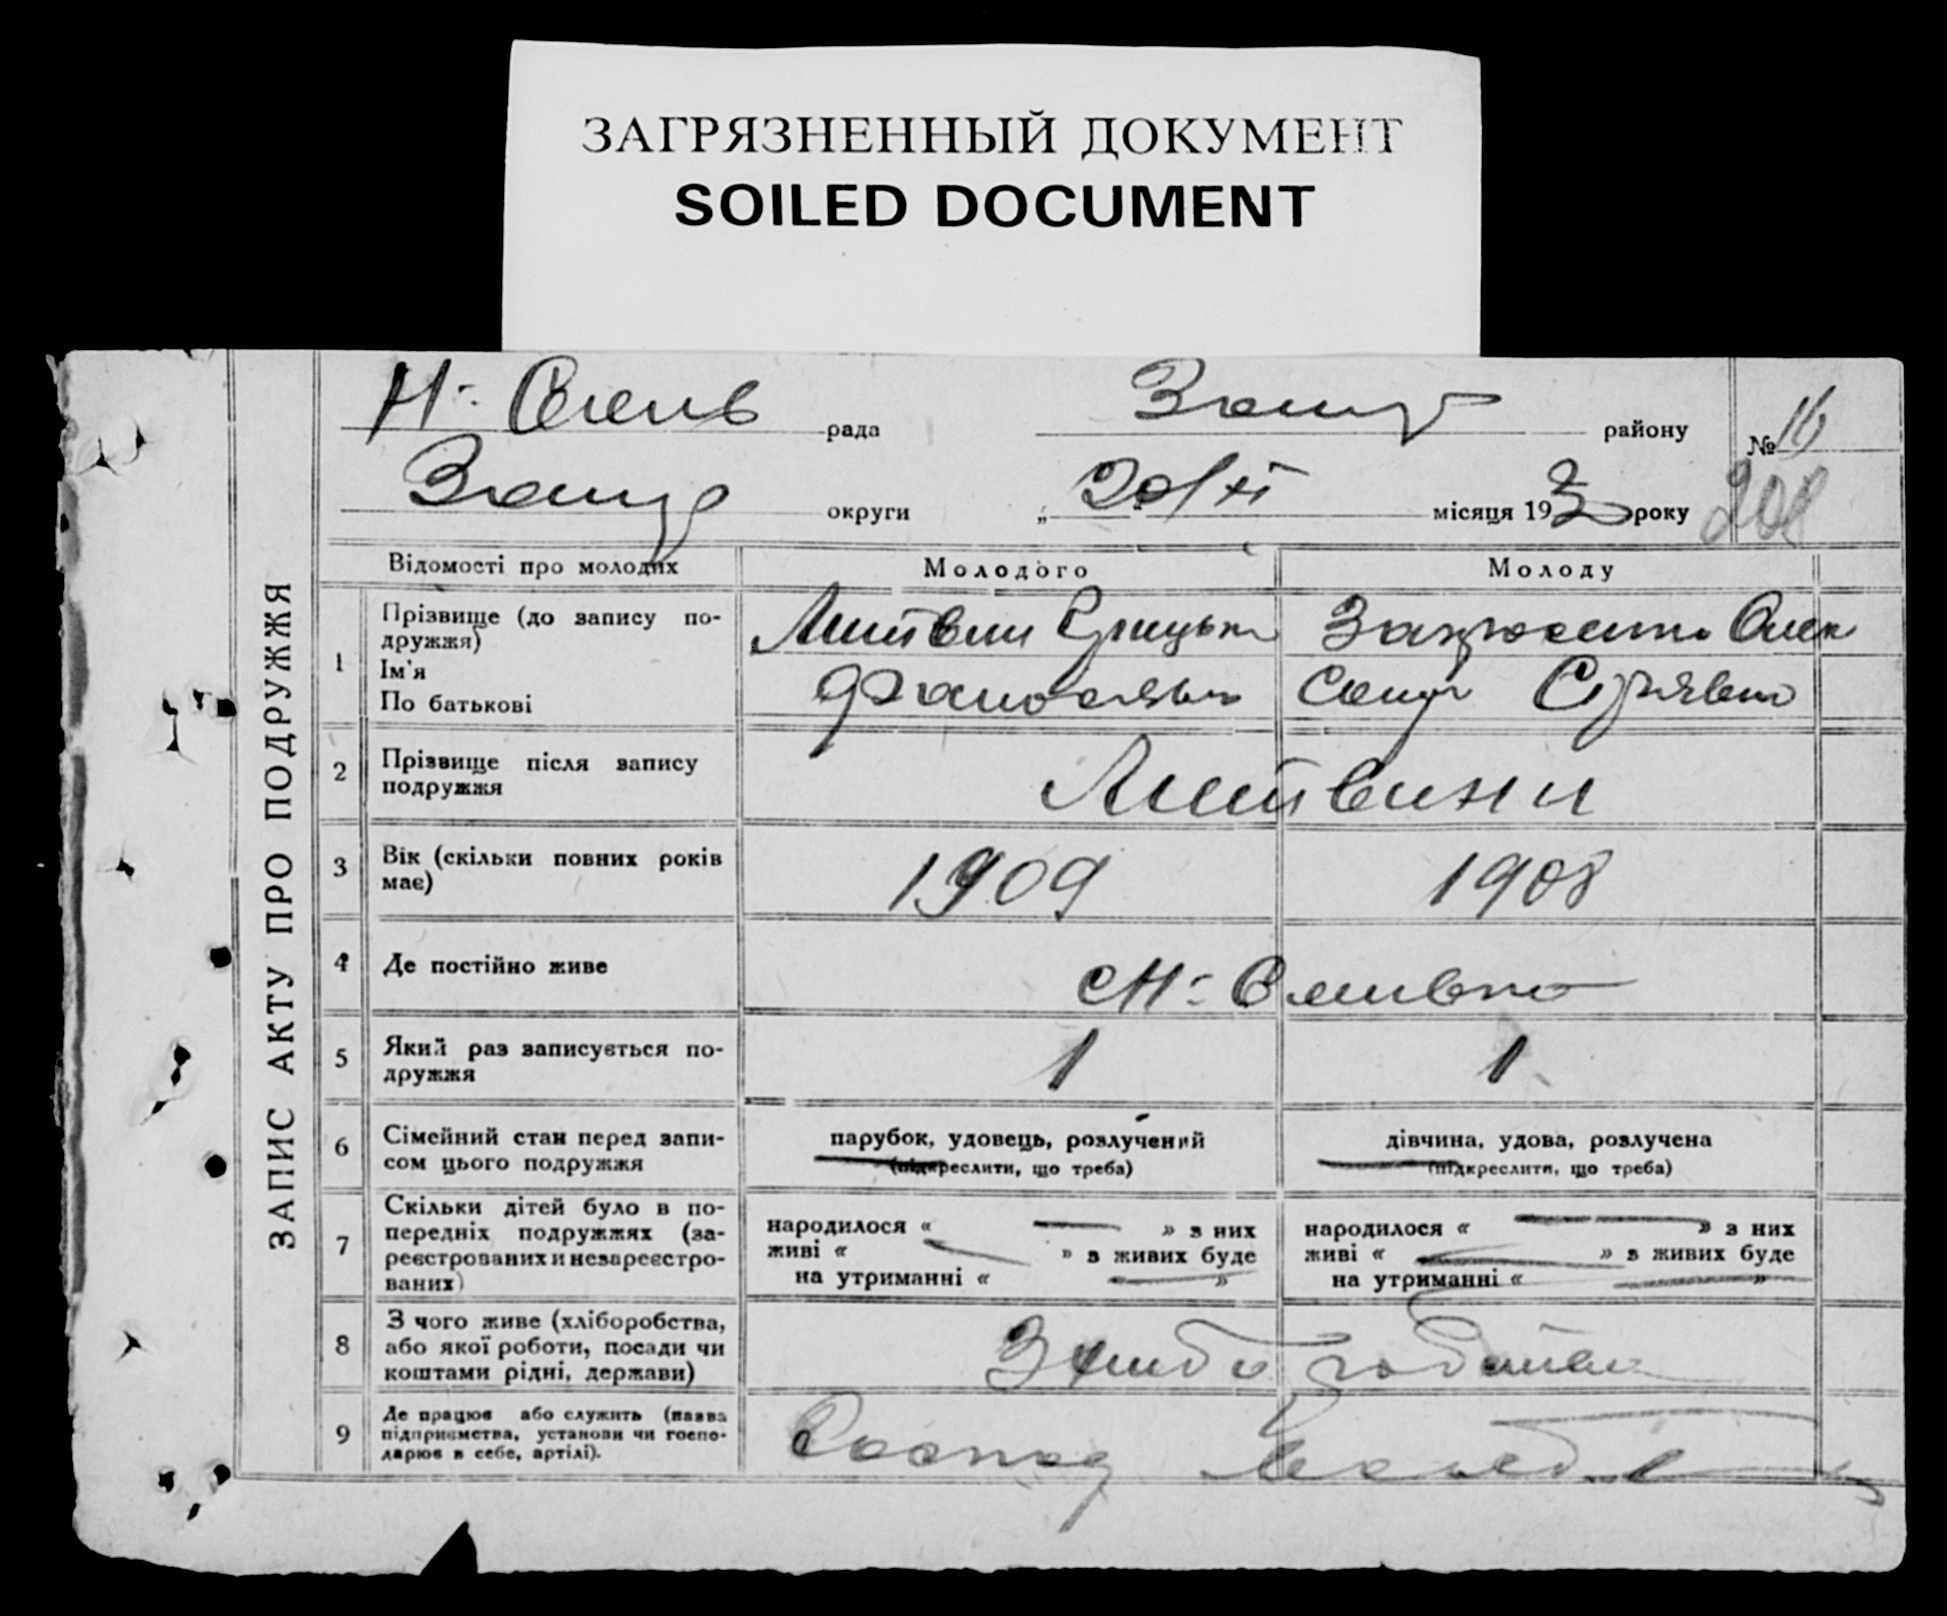 ЗАГРЯЗНЕННЫЙ ДОКУМЕНТ
SOILED DOCUMENT
рада району № 16
округи „20/XI місяця 193 року 208
ЗАПИС АКТУ ПРО ПОДРУЖЖЯ
Відомості про молодих Молодого Молоду
1 Прізвище (до запису по-
дружжя)
Ім'я
По батькові
Литвин Грицько
Олек
2 Прізвище після запису
подружжя
Литвини
3 Вік (скільки повних років
має)
1909 1908
4 Де постійно живе
5 Який раз записується по-
дружжя
1 1
6 Сімейний стан перед запи-
сом цього подружжя
парубок, удовець, розлучений
(підкреслити, що треба)
дівчина, удова, розлучена
(підкреслити, що треба)
7 Скільки дітей було в по-
передніх подружжях (за-
реєстрованих и незареєстро-
ваних)
народилося « — » з них
живі « — » з живих буде
на утриманні « — »
народилося « — » з них
живі « — » з живих буде
на утриманні « — »
8 З чого живе (хліборобства,
або якої роботи, посади чи
коштами рідні, держави)
9 Де працює або служить (назва
підприємства, установи чи госпо-
дарює в себе, артілі).